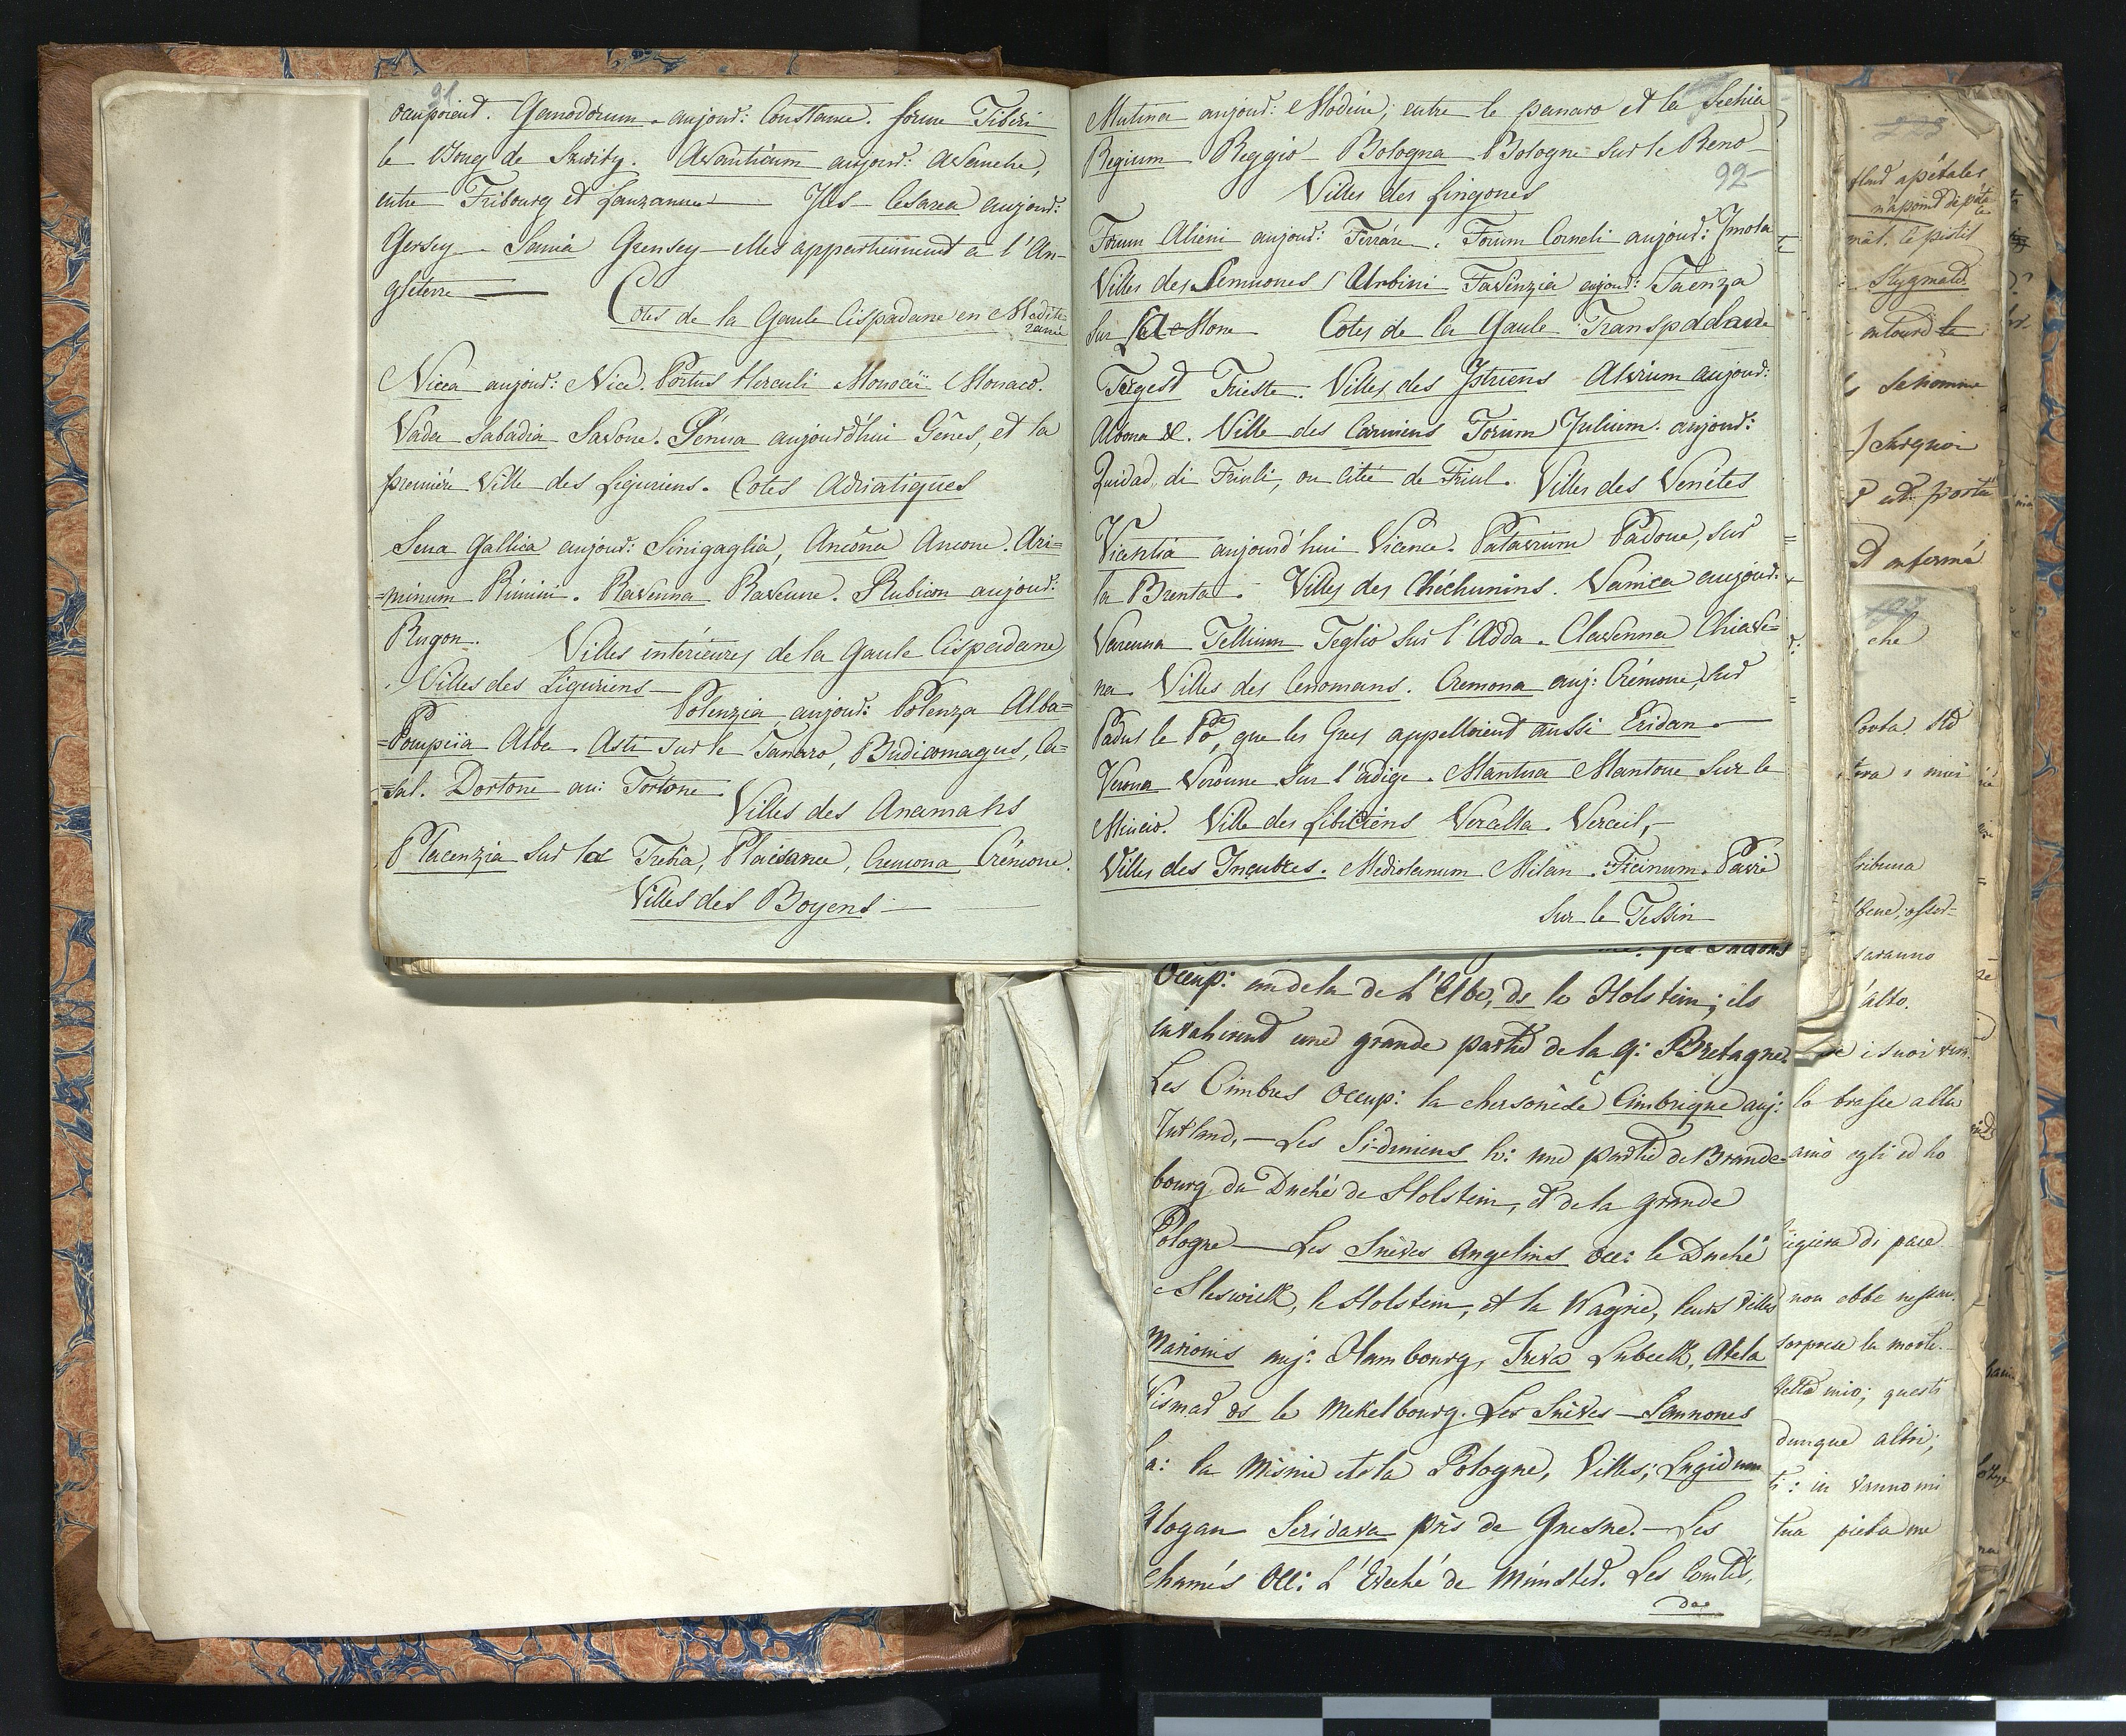 91
occupoient. Ganodorum. aujour: Constance. forum Tibéri
le Bourg de Swity. Avanticum aujour: Avanche,
entre Fribourg et Lauzanne — Iles Cesarea aujour:
Gersey — Sarnia Grensey — elles appartiennent a l'An-
gleterre —
Cotes de la Gaule Cispadane en Medite-
ranée
Nicea aujour: Nice. Portus Herculi Monocii Monaco.
Vada Sabadia Savone. Génua aujourd'hui Gênes, et la
première Ville des Liguriens. Cotes Adriatiques
Sena Gallica aujour: Sinigaglia, Ancona Ancone. Ari=
=minum Rimini. Ravenna Ravenne. Rubicon aujour:
Rugon. Villes intérieures de la Gaule Cispadane
Villes des Liguriens —
Polenzia aujour: Polenza Alba=
=Pompeïa Alba. Asti sur le Tanaro, Budicomagus, Ca=
=sal. Dortone au: Tortone.
Villes des Anamans
Placenzia sur la Trebia, Plaisance, Cremona Crémone.
Villes des Boyens —
Mutina aujour: Modéne; entre le panaro et la Sechia
Regium Reggio — Bologna Bologne sur le Reno —
92
Villes des Lingones
Forum Aliéni aujour: Ferrare. Forum Corneli aujour: Imola
Villes des Semnones Urbini Favenzia aujour: Faenza
sur la Mone Cotes de la Gaule Transpadane
Tergest Trieste. Villes des Istriens Alvium aujour:
Albona &. Ville des Carniens Forum Julium. aujour:
Zuidad di Friuli, ou Citée de Friul. Villes des Venétes
Vicentia aujourd'hui Vicence. Patavium Padoue, sur
la Brenta. Villes des Chéchunins. Vanica aujour:
Varenna Tellium Teglio sur l'Adda. Clavenna Chiave=
na. Villes des Cenomans. Cremona auj: Crémone, sur
Padus le Pô, que les Grecs appelloient aussi Eridan. —
Verona Veronne sur l'adige. Mantua Mantoue sur le
Mincio. Ville des Libiciens Vercella. Verceil, —
Villes des Insubres. Mediolanum Milan. Ticinum. Pavie
sur le Tessin
Occup: au dela de L'Elbe, ds le Holstein; ils
envahirent une grande partie de la g: Bretagne.
Les Cimbres occup: la chersonèse Cimbrique auj:
Jutland, — Les Sidiniens h: une partie de Brande-
bourg du Duché de Holstein, et de la grande
Pologne — Les Suèves Angelins occ: le Duché
Sleswick, le Holstein, et la Wagrie, leurs villes
Marionis auj: Hambourg, Treva Lubeck, Alela
Vismar ds le Mekelbourg. Les Suèves — Semnones
la: la Misnie et la Pologne, Villes; Lugidunum
Glogau Seridava près de Gnesne. — Les
Chamés Occ: L'Eveché de Münster. Les Comtés,
des
223
n'a point de péta
le pistil
Stygmate.
entourd le
Se nomme
est porta
che
tribuna
saranno
alto.
e i suoi
la brasse alla
egli ed ho
di pace
non ebbe
sorprese la morte.
mio; questi
dunque altri;
in vanno mi
tua pieta me